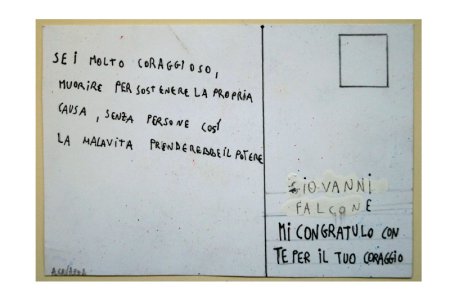 SEI MOLTO CORAGGIOSO,
MUORIRE PER SOSTENERE LA PROPRIA
CAUSA, SENZA PERSONE COSÍ
LA MALAVITA PRENDEREBBE IL POTERE
GIOVANNI
FALCONE
MI CONGRATULO CON
TE PER IL TUO CORAGGIO